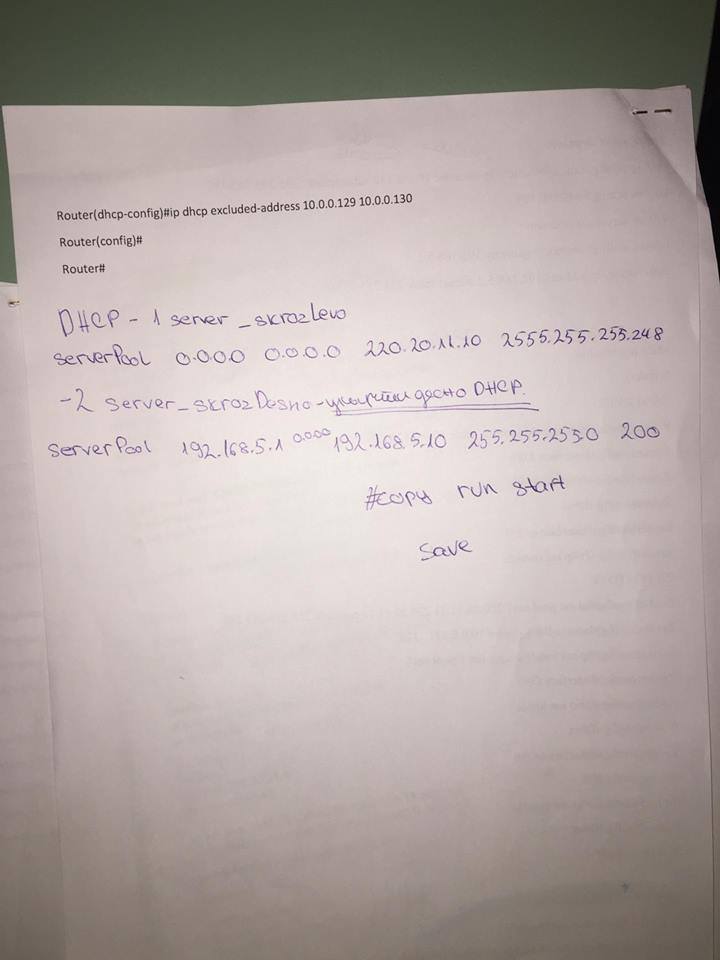 Router(dhcp-config)#ip dhcp excluded-address 10.0.0.129 10.0.0.130
Router(config)#
Router#
DHCP - 1 server_skrozLevo
serverPool 0.0.0.0 0.0.0.0 220.20.11.10 2555.255.255.248
-2 server_skrozDesno - десно DHCP.
serverPool 192.168.5.1 0.0.0.0 192.168.5.10 255.255.255.0 200
#copy run start
save